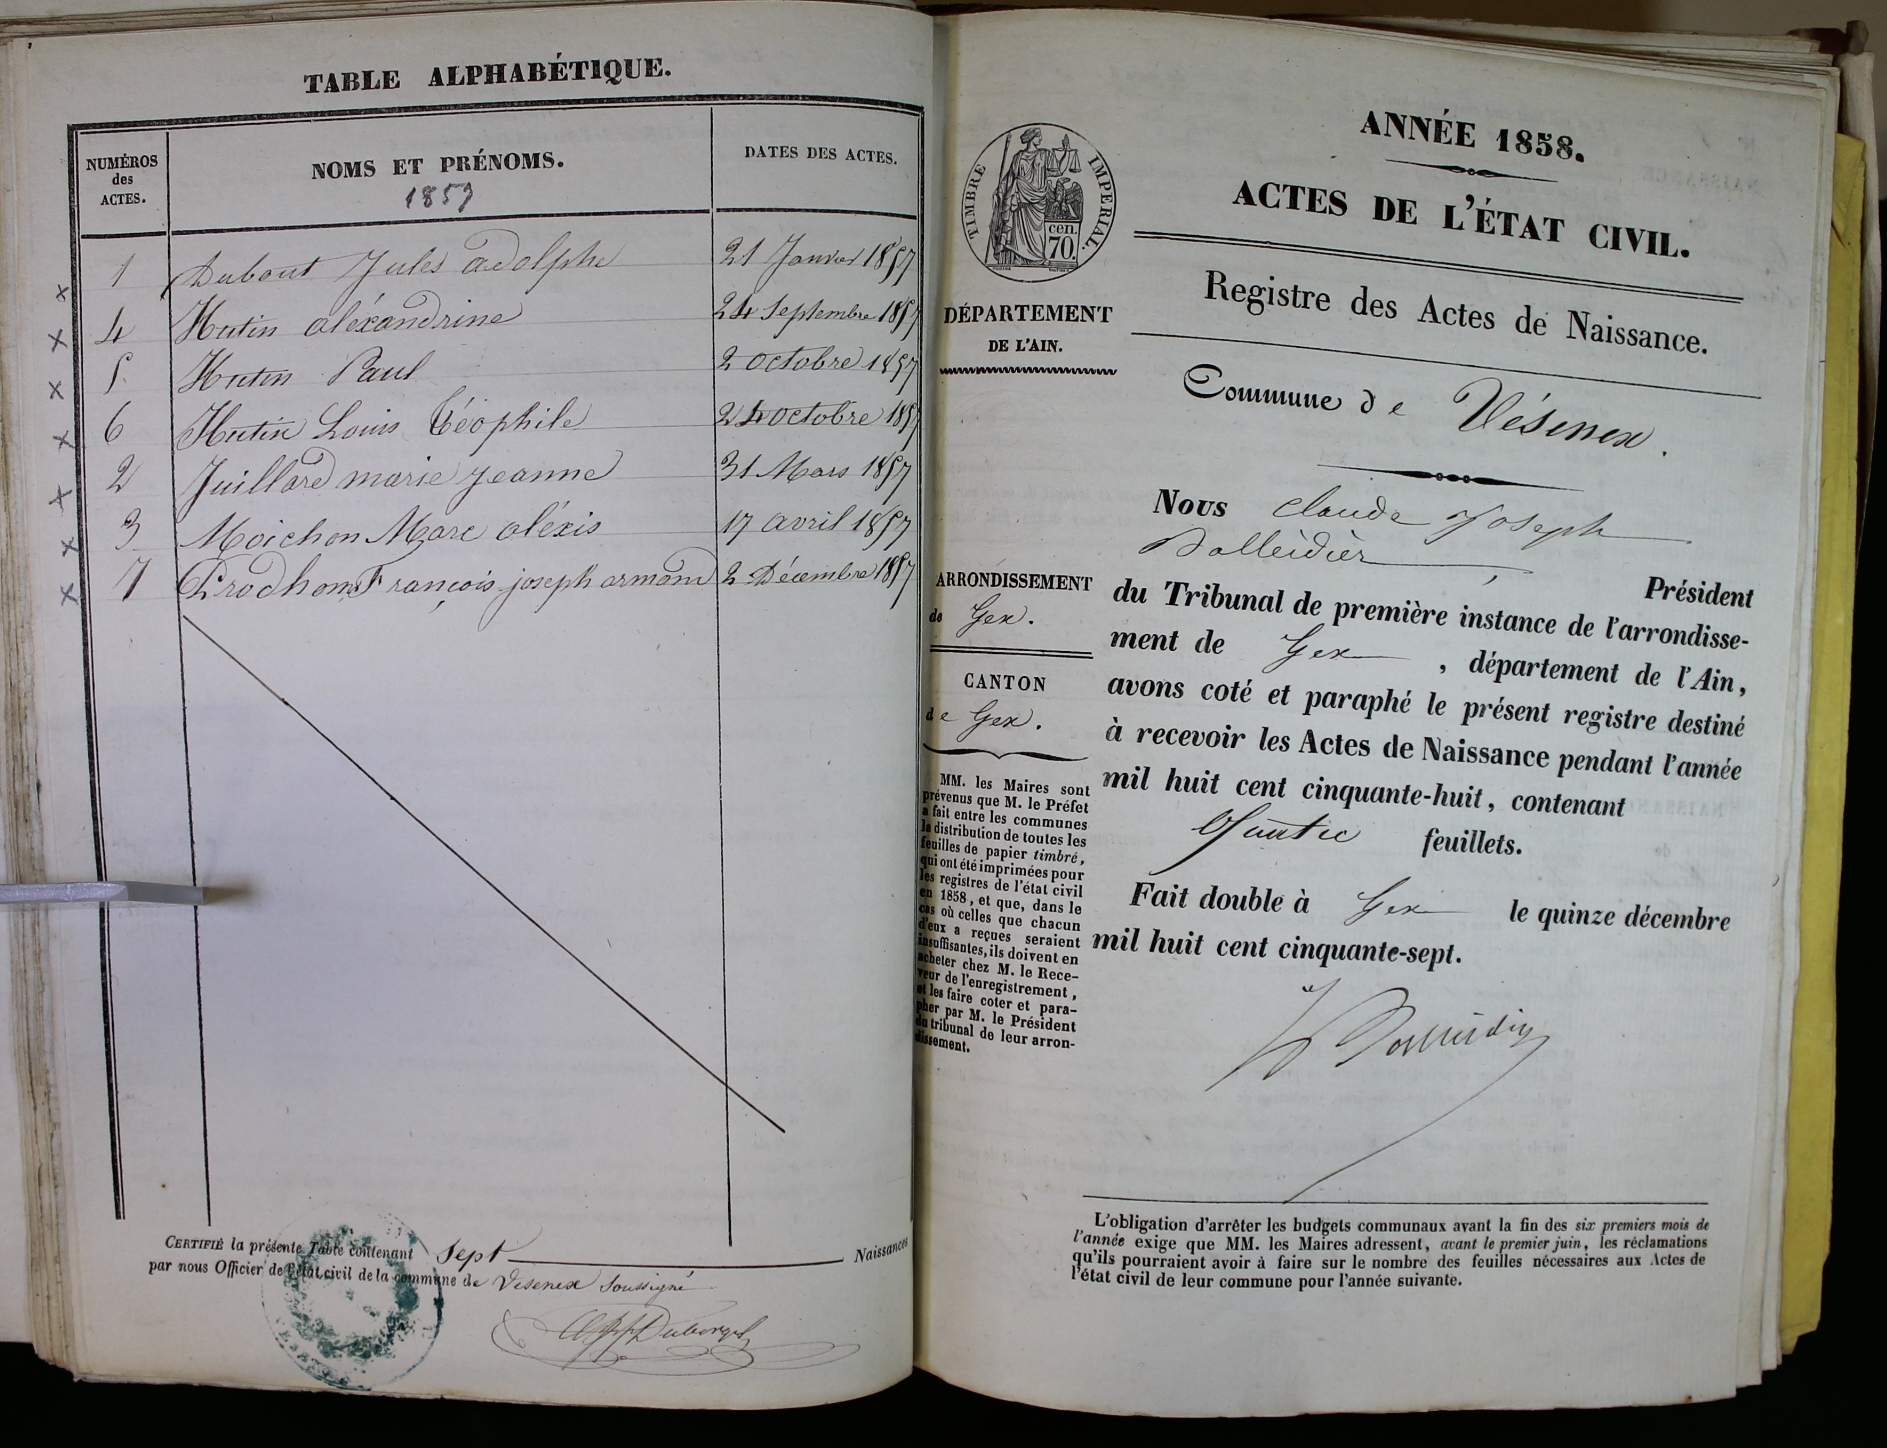 TABLE ALPHABÉTIQUE.
NUMÉROS
des
ACTES.
NOMS ET PRÉNOMS.
1857
DATES DES ACTES.
1 Dubout Jules adolphe 21 Janvier 1857
4 Hutin aléxandrine 24 Septembre 1857
5 Hutin Paul 2 octobre 1857
6 Hutin Louis Téophile 24 octobre 1857
2 Juillard marie jeanne 31 Mars 1857
3 Moichon Marc aléxis 17 avril 1857
7 Prodhom François joseph armand 2 Décembre 1857
CERTIFIÉ la présente Table contenant Sept Naissances
par nous Officier de l'état civil de la commune de Vesenex Soussigné
ANNÉE 1858.
ACTES DE L'ÉTAT CIVIL.
Registre des Actes de Naissance.
Commune de Vésenex.
TIMBRE IMPERIAL.
cen.
70.
DÉPARTEMENT
DE L'AIN.
ARRONDISSEMENT
de Gex.
CANTON
de Gex.
MM. les Maires sont
prévenus que M. le Préfet
a fait entre les communes
la distribution de toutes les
feuilles de papier timbré,
qui ont été imprimées pour
les registres de l'état civil
en 1858, et que, dans le
cas où celles que chacun
d'eux a reçues seraient
insuffisantes, ils doivent en
acheter chez M. le Rece-
veur de l'enregistrement,
et les faire coter et para-
pher par M. le Président
du tribunal de leur arron-
dissement.
Nous Claude Joseph
Balleidier, Président
du Tribunal de première instance de l'arrondisse-
ment de Gex, département de l'Ain,
avons coté et paraphé le présent registre destiné
à recevoir les Actes de Naissance pendant l'année
mil huit cent cinquante-huit, contenant
feuillets.
Fait double à Gex le quinze décembre
mil huit cent cinquante-sept.
L'obligation d'arrêter les budgets communaux avant la fin des six premiers mois de
l'année exige que MM. les Maires adressent, avant le premier juin, les réclamations
qu'ils pourraient avoir à faire sur le nombre des feuilles nécessaires aux Actes de
l'état civil de leur commune pour l'année suivante.